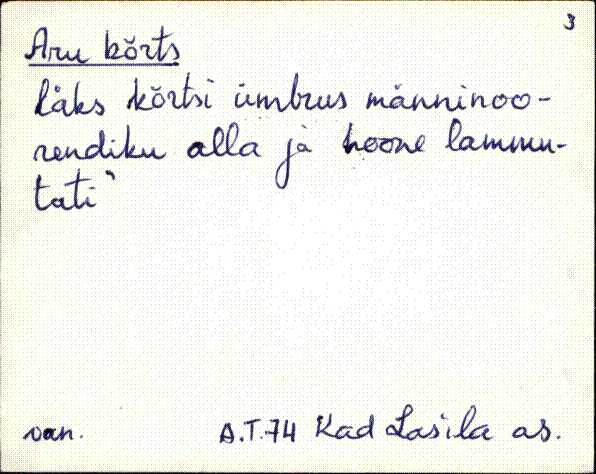 3
Aru kõrts
läks kõrtsi ümbrus männinoo-
rendiku alla ja hoone lammu-
tati"
van. A.T.74 Kad Lasila as.